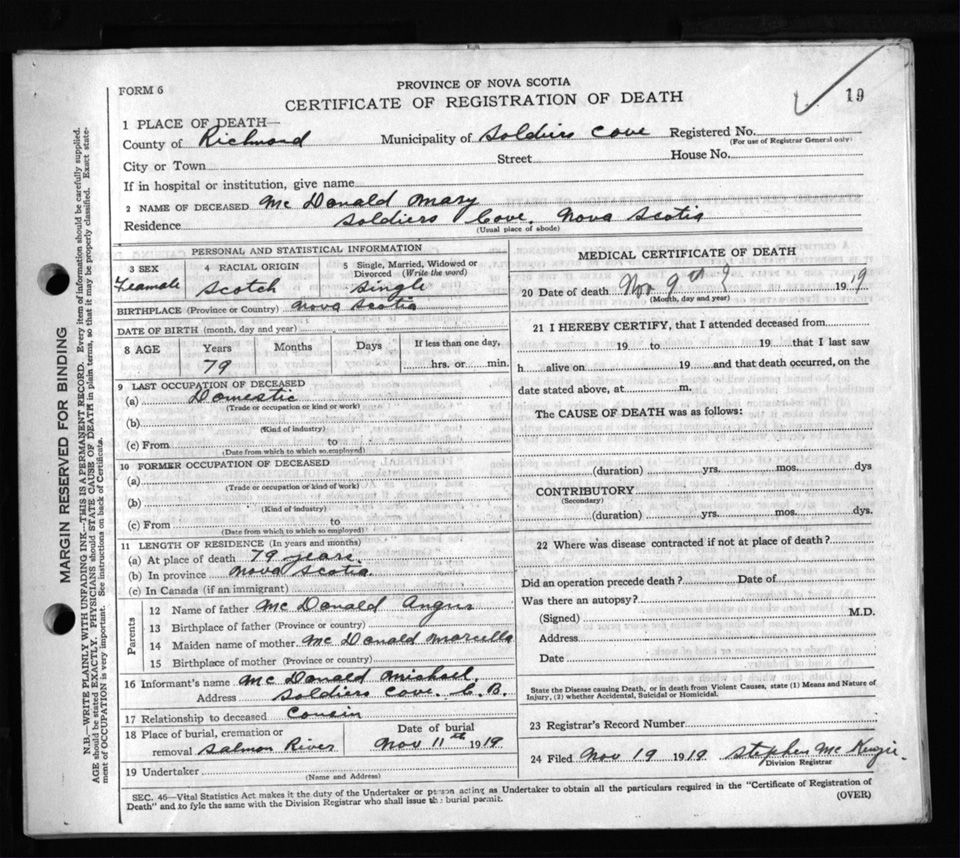 FORM 6
PROVINCE OF NOVA SCOTIA
CERTIFICATE OF REGISTRATION OF DEATH
19
1 PLACE OF DEATH—
County of Richmond Municipality of Soldiers Cove Registered No.
(For use of Registrar General only)
City or Town Street House No.
If in hospital or institution, give name
2 NAME OF DECEASED Mc Donald Mary
Residence Soldiers Cove, Nova Scotia
(Usual place of abode)
MARGIN RESERVED FOR BINDING
N.B.—WRITE PLAINLY WITH UNFADING INK—THIS IS A PERMANENT RECORD. Every item of information should be carefully supplied.
AGE should be stated EXACTLY. PHYSICIANS should STATE CAUSE OF DEATH in plain terms, so that it may be properly classified. Exact state-
ment of OCCUPATION is very important. See instructions on back of Certificate.
PERSONAL AND STATISTICAL INFORMATION
3 SEX
Feamale
4 RACIAL ORIGIN
Scotch
5 Single, Married, Widowed or
Divorced (Write the word)
Single
BIRTHPLACE (Province or Country) Nova Scotia
DATE OF BIRTH (month, day and year)
8 AGE Years Months Days If less than one day,
79 hrs. or min.
9 LAST OCCUPATION OF DECEASED
(a) Domestic
(Trade or occupation or kind or work)
(b)
(Kind of industry)
(c) From to
(Date from which to which so employed)
10 FORMER OCCUPATION OF DECEASED
(a)
(Trade or occupation or kind of work)
(b)
(Kind of industry)
(c) From to
(Date from which to which so employed)
11 LENGTH OF RESIDENCE (In years and months)
(a) At place of death 79 years
(b) In province Nova Scotia.
(c) In Canada (if an immigrant)
Parents
12 Name of father Mc Donald Angus
13 Birthplace of father (Province or country)
14 Maiden name of mother Mc Donald Marcella
15 Birthplace of mother (Province or country)
16 Informant's name Mc Donald Michael.
Address Soldiers Cove. C. B.
17 Relationship to deceased Cousin
18 Place of burial, cremation or
removal Salmon River
Date of burial
Nov 11th 1919
19 Undertaker
(Name and Address)
MEDICAL CERTIFICATE OF DEATH
20 Date of death Nov 9th 1919
(Month, day and year)
21 I HEREBY CERTIFY, that I attended deceased from
19 to 19 that I last saw
h alive on 19 and that death occurred, on the
date stated above, at m.
The CAUSE OF DEATH was as follows:
(duration) yrs. mos. dys
CONTRIBUTORY
(Secondary)
(duration) yrs. mos. dys.
22 Where was disease contracted if not at place of death?
Did an operation precede death? Date of
Was there an autopsy?
(Signed) M.D.
Address
Date
State the Disease causing Death, or in death from Violent Causes, state (1) Means and Nature of
Injury, (2) whether Accidental, Suicidal or Homicidal.
23 Registrar's Record Number
24 Filed Nov 19 1919 Stephen Mc Kenzie.
Division Registrar
SEC. 46—Vital Statistics Act makes it the duty of the Undertaker or person acting as Undertaker to obtain all the particulars required in the "Certificate of Registration of
Death" and to fyle the same with the Division Registrar who shall issue the burial permit.
(OVER)